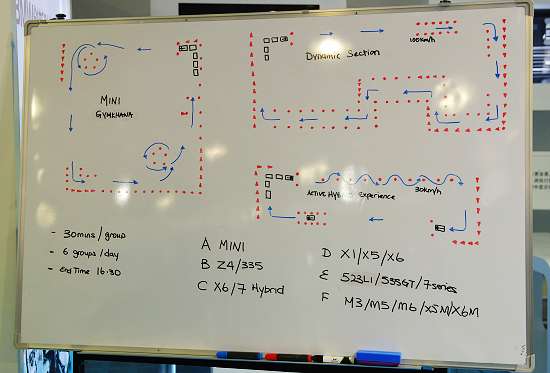 MINI
GYMKHANA
Dynamic Section
100km/h
ACTIVE Hybrid Experience
30km/h
- 30mins/group
- 6 groups/day
- End Time 16:30
A MINI
B Z4/335
C X6/7 Hybrid
D X1/X5/X6
E 523Li/535GT/7series
F M3/M5/M6/X5M/X6M